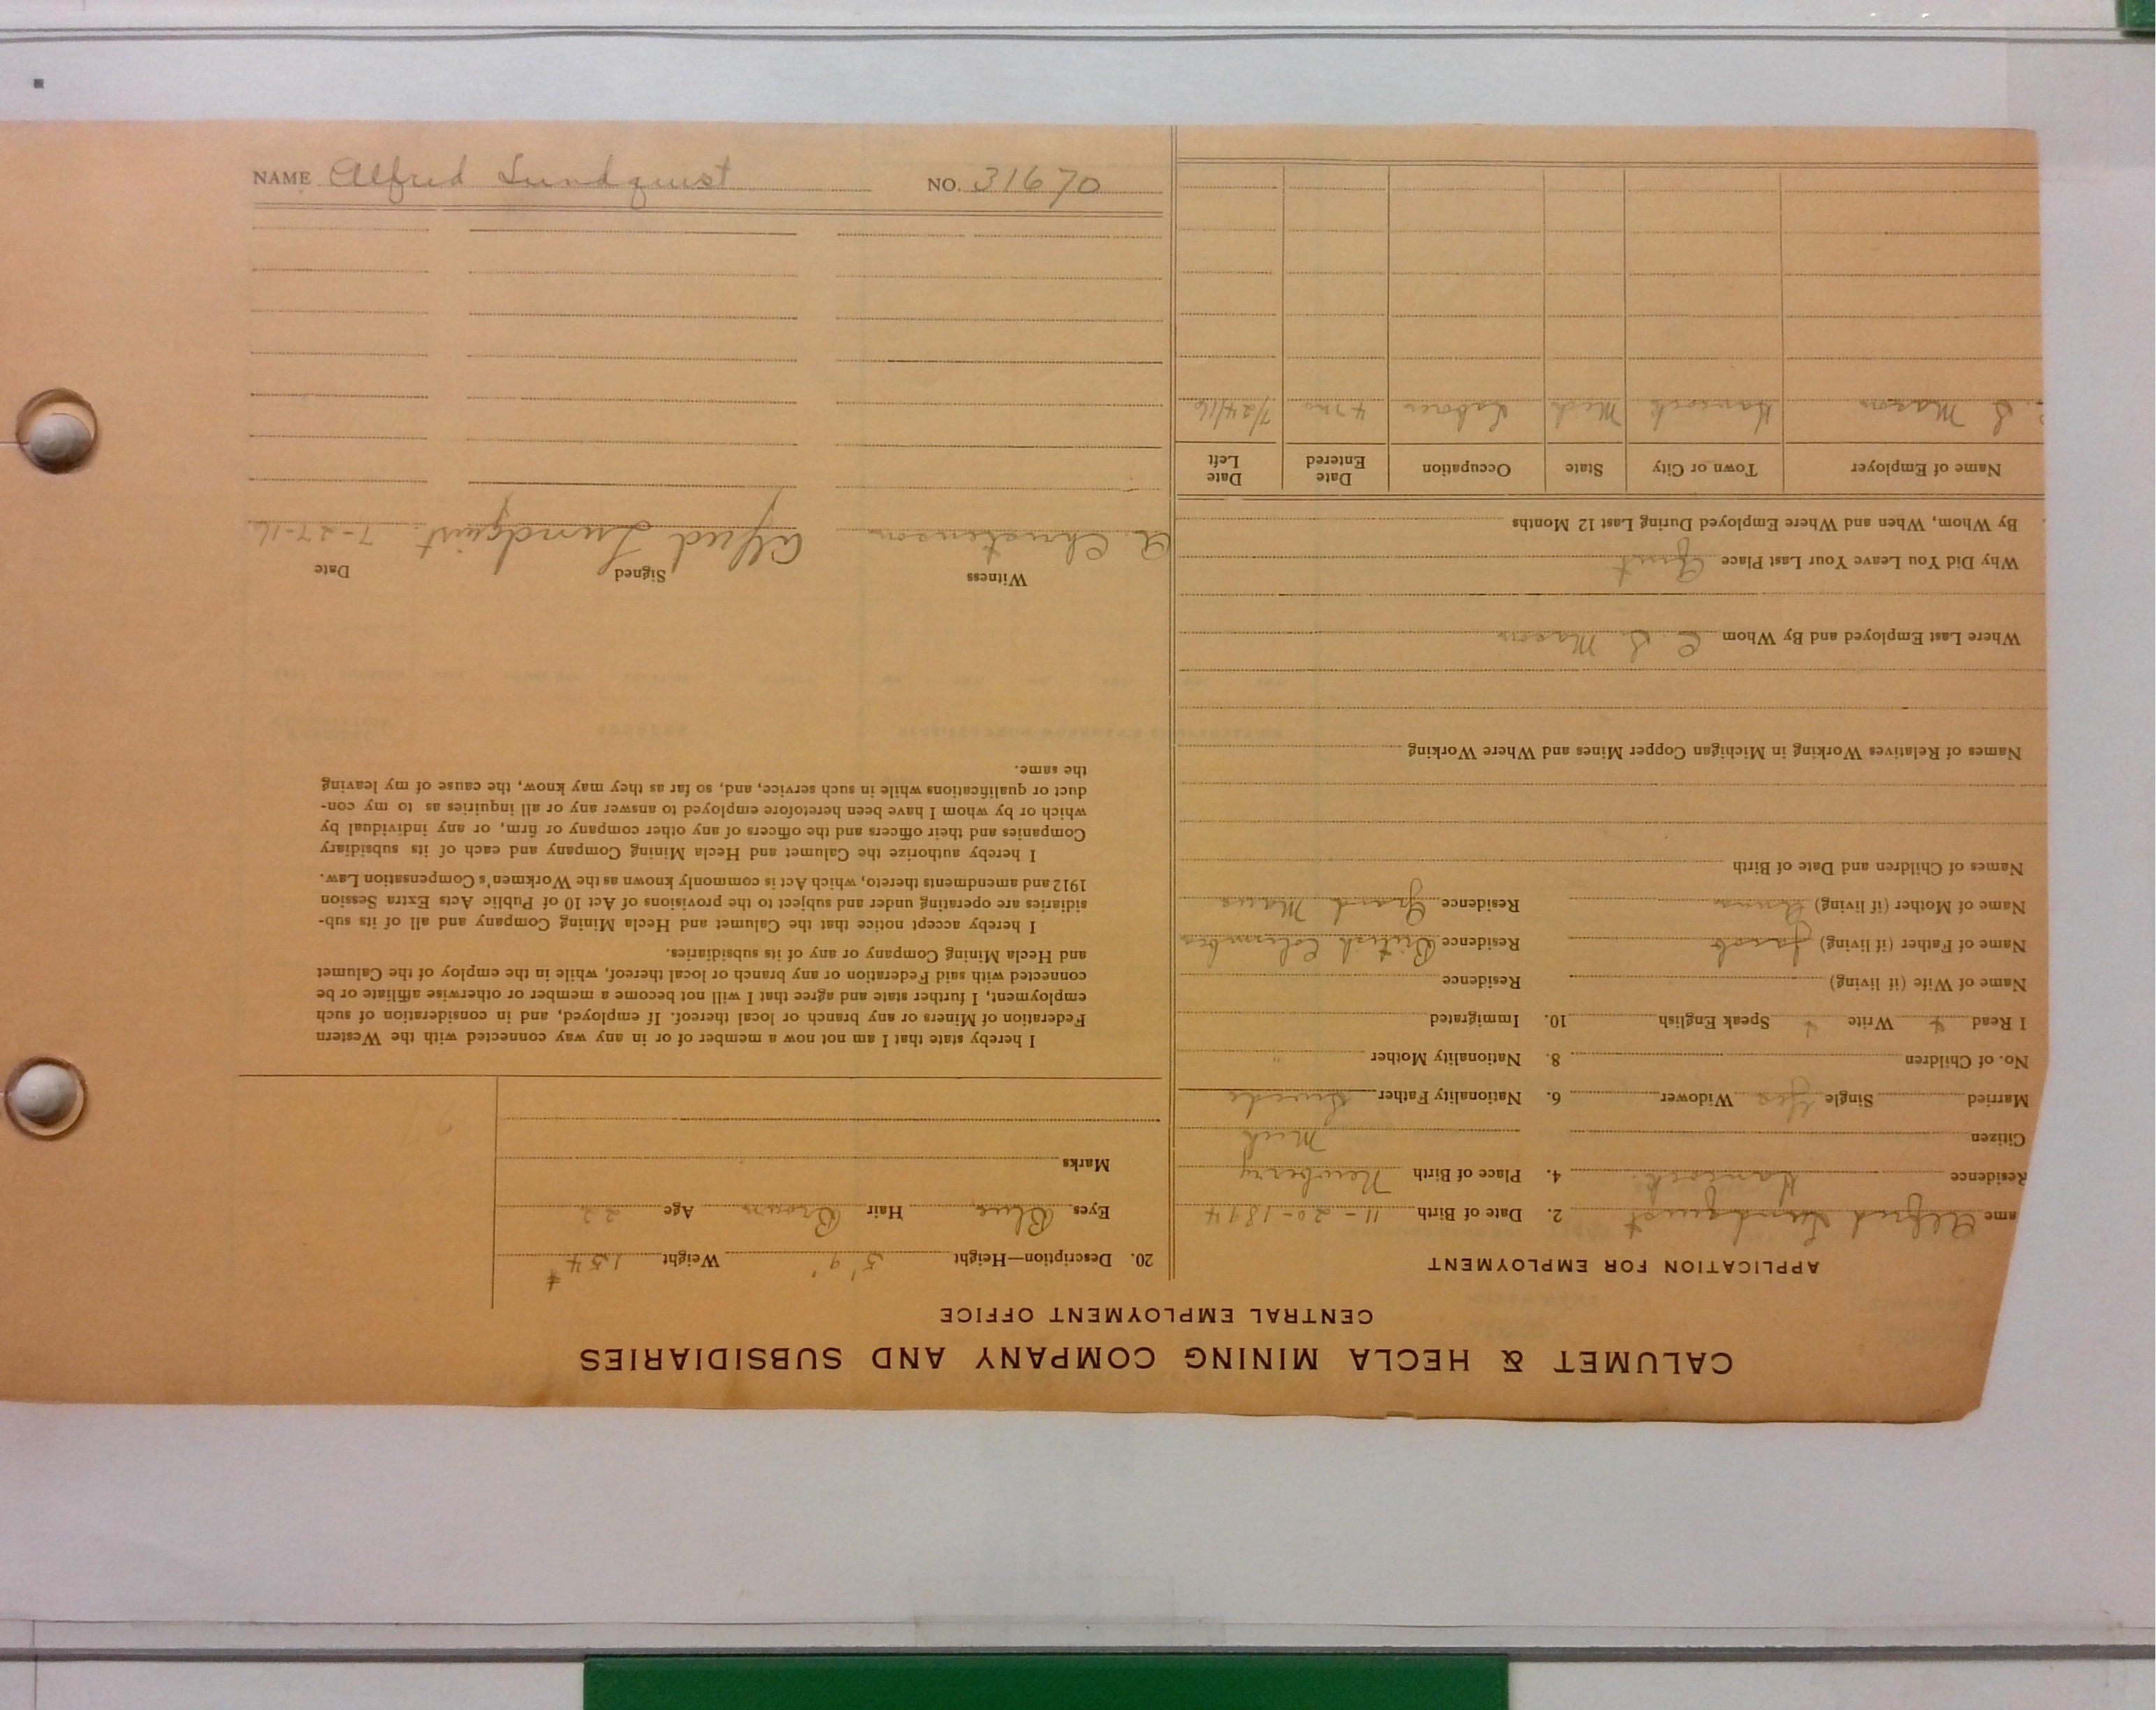 CALUMET & HECLA MINING COMPANY AND SUBSIDIARIES
CENTRAL EMPLOYMENT OFFICE
APPLICATION FOR EMPLOYMENT
ame Alfred Lundquist 2. Date of Birth 11-20-1894
Residence Hancock 4. Place of Birth Newberry
Citizen Mich
Married Single Yes Widower 6. Nationality Father Swede
No. of Children 8. Nationality Mother "
I Read Write Speak English 10. Immigrated
Name of Wife (if living) Residence
Name of Father (if living) Jacob Residence British Columbia
Name of Mother (if living) Anna Residence Grand Marais
Names of Children and Date of Birth
Names of Relatives Working in Michigan Copper Mines and Where Working
Where Last Employed and By Whom C. S. Mason
Why Did You Leave Your Last Place Quit
By Whom, When and Where Employed During Last 12 Months
Name of Employer Town or City State Occupation Date Entered Date Left
S. Mason Hancock Mich Laborer 4 mo 7/24/16
20. Description—Height 5' 9" Weight 154 #
Eyes Blue Hair Brown Age 22
Marks
I hereby state that I am not now a member of or in any way connected with the Western
Federation of Miners or any branch or local thereof. If employed, and in consideration of such
employment, I further state and agree that I will not become a member or otherwise affiliate or be
connected with said Federation or any branch or local thereof, while in the employ of the Calumet
and Hecla Mining Company or any of its subsidiaries.
I hereby accept notice that the Calumet and Hecla Mining Company and all of its sub-
sidiaries are operating under and subject to the provisions of Act 10 of Public Acts Extra Session
1912 and amendments thereto, which Act is commonly known as the Workmen's Compensation Law.
I hereby authorize the Calumet and Hecla Mining Company and each of its subsidiary
Companies and their officers and the officers of any other company or firm, or any individual by
which or by whom I have been heretofore employed to answer any or all inquiries as to my con-
duct or qualifications while in such service, and, so far as they may know, the cause of my leaving
the same.
Witness Signed Date
A. Christenson Alfred Lundquist. 7-27-16
NAME Alfred Lundquist NO. 31670